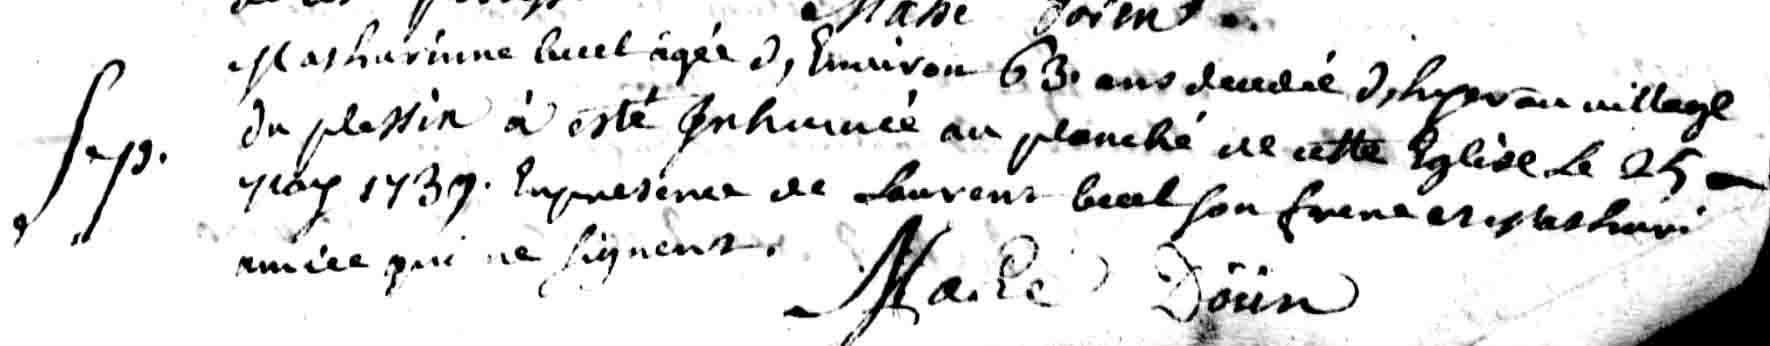 Masse Doüin
Mathurinne lucel agée d'Environ 63. ans decedée d'hyer au village
Sep. du plessix à esté Inhumée au planché de cette Eglise Le 25
may 1739. En presence de Laurent lucel son frere et Mathuri
amice qui ne signent.
Masse Doüin